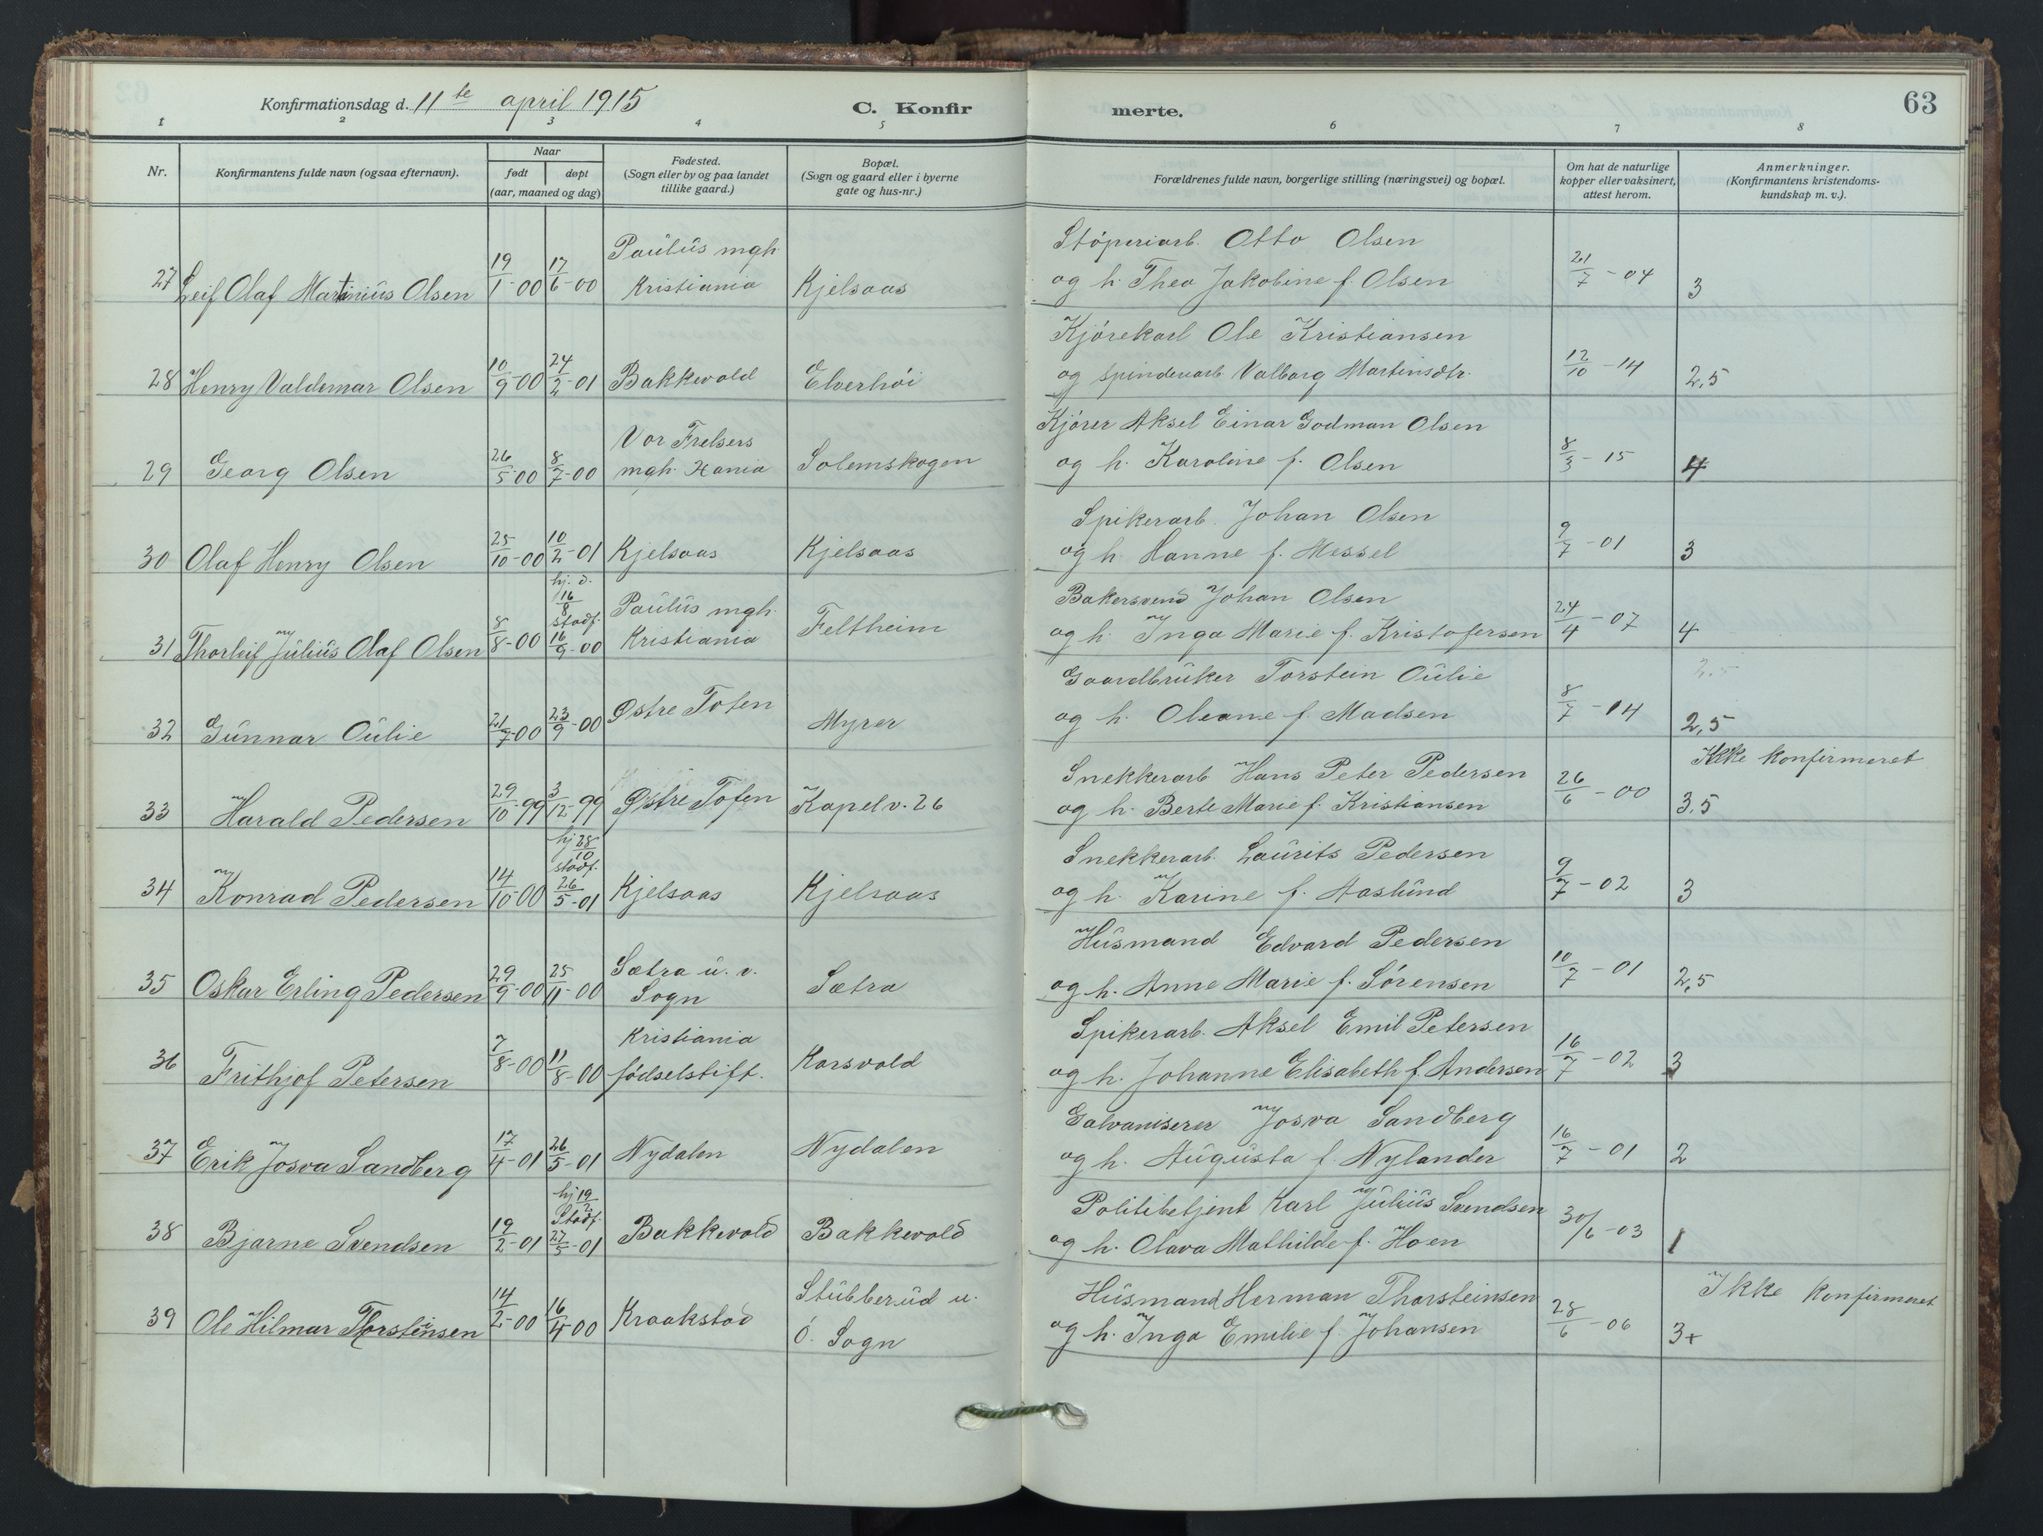 Konfirmationsdag d. 11te april 1915
C. Konfir
merte.
63
1 2 3 4 5 6 7 8
Nr.
Konfirmantens fulde navn (ogsaa efternavn).
Naar
født
døpt
(aar, maaned og dag)
Fødested.
(Sogn eller by og paa landet
tillike gaard.)
Bopæl.
(Sogn og gaard eller i byerne
gate og hus-nr.)
Forældrenes fulde navn, borgerlige stilling (næringsvei) og bopæl.
Om hat de naturlige
kopper eller vaksinert,
attest herom.
Anmerkninger.
(Konfirmantens kristendoms-
kundskap m. v.).
Paulus mgh. Støperiarb. Otto Olsen
27 Leif Olaf Martinius Olsen 19/1-00 17/6-00 Kristiania Kjelsaas og h. Thea Jakobine f. Olsen 21/7-04 3
Kjørekarl Ole Kristiansen
28 Henry Valdemar Olsen 10/9-00 24/2-01 Bakkevold Elverhöi og spinderarb. Valborg Martinsdtr. 12/10-14 2,5
Vor Frelsers Kjører Aksel Einar Godman Olsen
29 Georg Olsen 26/5-00 8/7-00 mgh. Xania Solemskogen og h. Karoline f. Olsen 8/3-15 4
Spikerarb. Johan Olsen
30 Olaf Henry Olsen 25/10-00 10/2-01 Kjelsaas Kjelsaas og h. Hanne f. Messel 9/7-01 3
hj. d. 16/8 stadf. Paulus mgh. Bakersvend Johan Olsen
31 Thorleif Julius Olaf Olsen 8/8-00 16/9-00 Kristiania Feltheim og h. Inga Marie f. Kristofersen 24/4-07 4
Gaardbruker Torstein Oulie 2,5
32 Gunnar Oulie 21/7-00 23/9-00 Østre Toten Myrer og h. Oleane f. Madsen 8/7-14 2,5
Snekkerarb Hans Peter Pedersen Ikke konfirmeret
33 Harald Pedersen 29/10-99 3/12-99 Østre Toten Kapelv. 26 og h. Berte Marie f. Kristiansen 26/6-00 3,5
hj 28/10 stadf. Snekkerarb. Laurits Pedersen
34 Konrad Pedersen 14/10-00 26/5-01 Kjelsaas Kjelsaas og h. Karine f. Aaslund 9/7-02 3
Sætra u. v. Husmand Edvard Pedersen
35 Oskar Erling Pedersen 29/9-00 25/11-00 Sogn Sætra og h. Anne Marie f. Sørensen 10/7-01 2,5
Kristiania Spikerarb. Aksel Emil Petersen
36 Frithjof Petersen 7/8-00 11/8-00 fødselstift. Korsvold og h. Johanne Elisabeth f. Andersen 16/7-02 3
Galvaniserer Josva Sandberg
37 Erik Josva Sandberg 17/4-01 26/5-01 Nydalen Nydalen og h. Augusta f. Nylander 16/7-01 2
hj 19/2 Stadf. Politibetjent Karl Julius Svendsen
38 Bjarne Svendsen 19/2-01 27/5-01 Bakkevold Bakkevold og h. Olava Mathilde f. Hoen 30/6-03 1
Stubberud u. Husmand Herman Thorsteinsen Ikke konfirmeret
39 Ole Hilmar Thorsteinsen 14/2-00 16/4-00 Kraakstad Ö. Sogn og h. Inga Emilie f. Johansen 28/6-06 3+